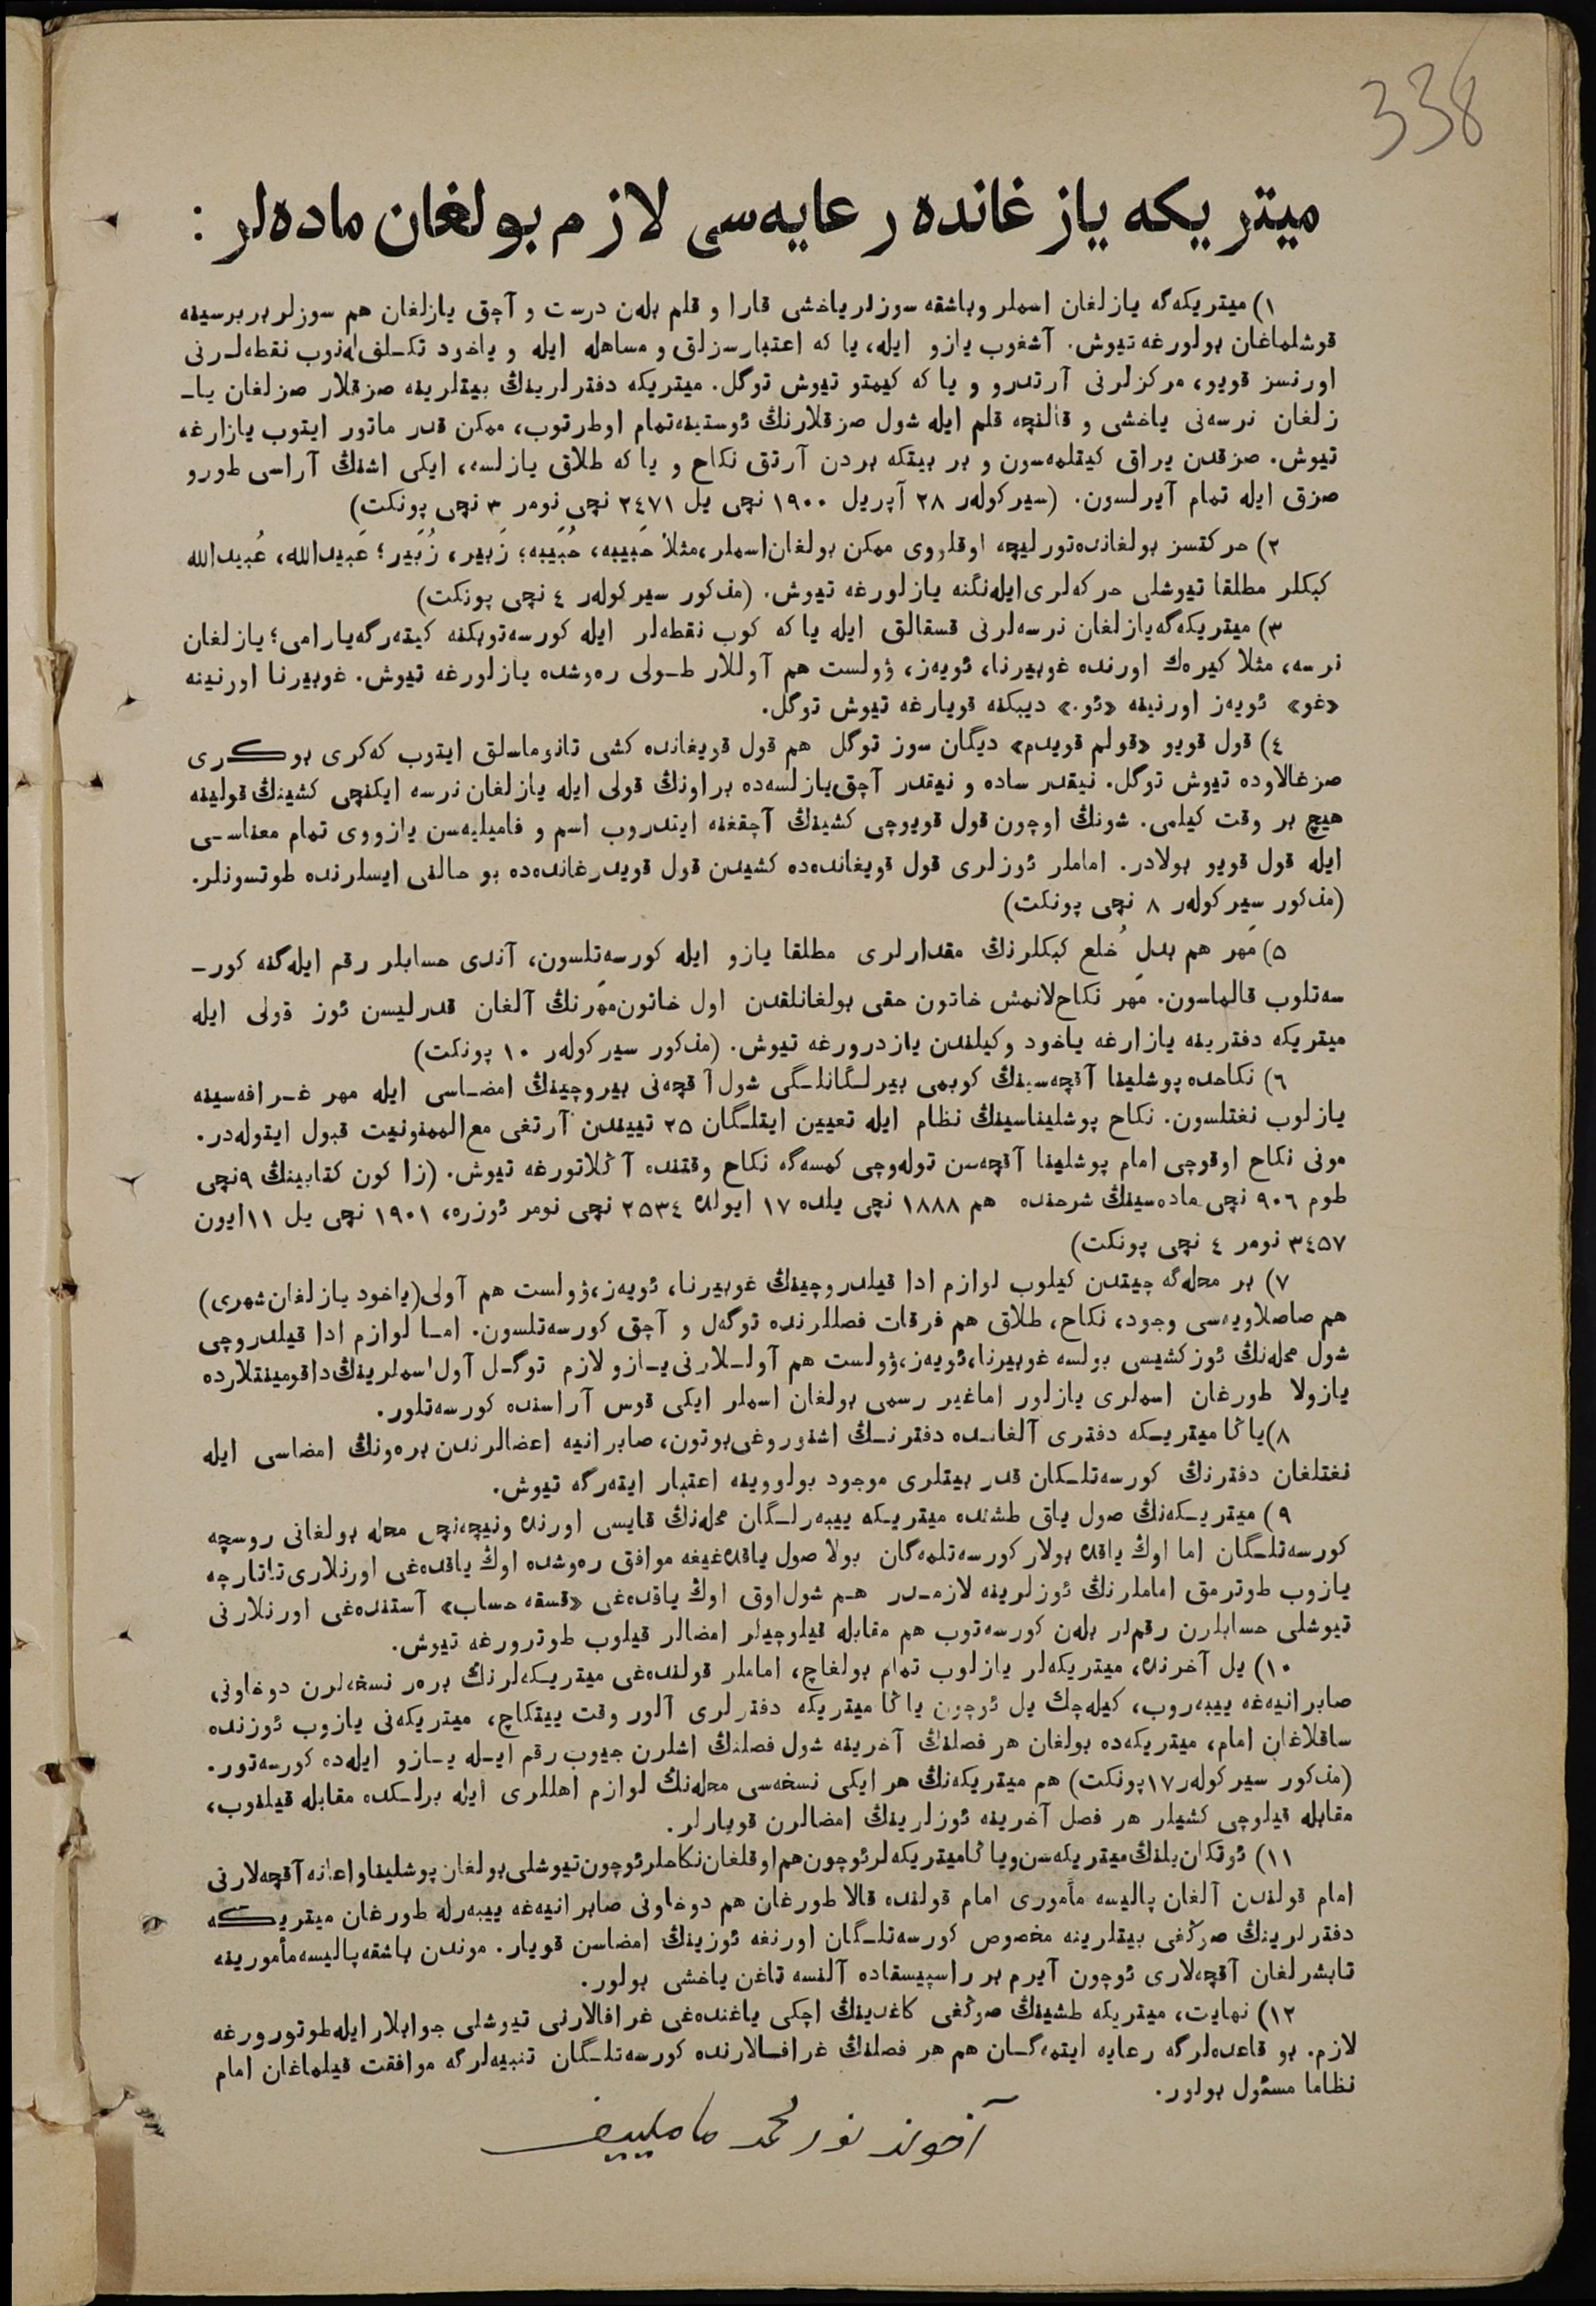 338
میتریکه یازغانده رعایه‌سی لازم بولغان ماده‌لر :
١) میتریکه‌گه یازلغان اسملر و باشقه سوزلر یاخشی قارا و قلم بله‌ن درست و آچق یازلغان هم سوزلر بربرسینه
قوشلماغان بولورغه تیوش. آشغوب یازو ایله، یا که اعتبارسزلق و مساهله ایله و یاخود تکـلف‌له‌نوب نقطه‌لـرنی
اورنسز قویو، مرکزلرنی آرتدرو و یا که کیمتو تیوش توگل. میتریکه دفترلرینڭ بیتلرینه صزقلار صزلغان یاـ
زلغان نرسه‌نی یاخشی و قالنچه قلم ایله شول صزقلارنڭ ئوستینه تمام اوطرتوب، ممکن قدر ماتور ایتوب یازارغه
تیوش. صزقدن یراق کیتلمه‌سون و بر بیتکه بردن آرتق نکاح و یا که طلاق یازلسه، ایکی اشنڭ آراسی طورو
صزق ایله تمام آیرلسون. (سیرکوله‌ر ٢٨ آپریل ١٩٠٠ نچی یل ٢٤٧١ نچی نومر ٣ نچی پونکت)
٢) حرکتسز بولغانده تورلیچه اوقلووی ممکن بولغان اسملر، مثلا حَبیبه، حُبَیبه؛ زَبیر، زُبَیر؛ عَبیدالله، عُبیدالله
کبکلر مطلقا تیوشلی حرکه‌لری ایله‌نگنه یازلورغه تیوش. (مذکور سیرکوله‌ر ٤ نچی پونکت)
٣) میتریکه‌گه یازلغان نرسه‌لرنی قسقالق ایله یا که کوب نقطه‌لر ایله کورسه‌توبکنه کیته‌رگه یارامی؛ یازلغان
نرسه، مثلا کیره‌ك اورنده غوبیرنا، ئویه‌ز، ؤولست هم آوللار طـولی ره‌وشده یازلورغه تیوش. غوبیرنا اورنینه
«غو» ئویه‌ز اورنینه «ئو.» دیبکنه قویارغه تیوش توگل.
٤) قول قویو «قولم قویدم» دیگان سوز توگل هم قول قویغانده کشی تانوماسلق ایتوب که‌کری بوکـری
صزغالاوده تیوش توگل. نیقدر ساده و نیقدر آچق یازلسه‌ده براونڭ قولی ایله یازلغان نرسه ایکنچی کشینڭ قولینه
هیچ بر وقت کیلمی. شونڭ اوچون قول قویوچی کشینڭ آچقغنه ایتدروب اسم و فامیلیه‌سن یازووی تمام معناسـی
ایله قول قویو بولادر. اماملر ئوزلری قول قویغانده‌ده کشیدن قول قویدرغانده‌ده بو حالنی ایسلرنده طوتسونلر.
(مذکور سیرکوله‌ر ٨ نچی پونکت)
٥) مَهر هم بدلِ خُلع کبکلرنڭ مقدارلری مطلقا یازو ایله کورسه‌تلسون، آندی حسابلر رقم ایله‌گنه کورـ
سه‌تلوب قالماسون. مَهر نکاح‌لانمش خاتون حقی بولغانلقدن اول خاتون مَهرنڭ آلغان قدرلیسن ئوز قولی ایله
میتریکه دفترینه یازارغه یاخود وکیلندن یازدرورغه تیوش. (مذکور سیرکوله‌ر ١٠ پونکت)
٦) نکاحده پوشلینا آقچه‌سینڭ کوبمی بیرلـگانلـگی شول آقچه‌نی بیروچینڭ امضـاسی ایله مهر غـرافه‌سینه
یازلوب نغتلسون. نکاح پوشلیناسینڭ نظام ایله تعیین ایتلـگان ٢٥ تییندن آرتغی مع‌الممنونیت قبول ایتوله‌در.
مونی نکاح اوقوچی امام پوشلینا آقچه‌سن توله‌وچی کمسه‌گه نکاح وقتنده آڭلاتورغه تیوش. (زاکون کتابینڭ ٩نچی
طوم ٩٠٦ نچی ماده‌سینڭ شرحنده هم ١٨٨٨ نچی یلده ١٧ ایولده ٢٥٣٤ نچی نومر ئوزره، ١٩٠١ نچی یل ١١ایون
٣٤٥٧ نومر ٤ نچی پونکت)
٧) بر محله‌گه چیتدن کیلوب لوازم ادا قیلدروچینڭ غوبیرنا، ئویه‌ز، ؤولست هم آولی (یاخود یازلغان شهری)
هم صاصلاویه‌سی وجود، نکاح، طلاق هم فرقات فصللرنده توگه‌ل و آچق کورسه‌تلسون. امـا لوازم ادا قیلدروچی
شول محله‌نڭ ئوز کشیسی بولسه غوبیرنا، ئویه‌ز، ؤولست هم آولـلارنی یـازو لازم توگـل آول اسملرینڭ داقومینتلارده
یازولا طورغان اسملری یازلور اما غیر رسمی بولغان اسملر ایکی قوس آراسنده کورسه‌تلور.
٨) یاڭا میتریـکه دفتری آلغانـده دفترنـڭ اشنوروغی بوتون، صابرانیه اعضالرندن بره‌ونڭ امضاسی ایله
نغتلغان دفترنڭ کورسه‌تلـکان قدر بیتلری موجود بولووینه اعتبار ایته‌رگه تیوش.
٩) میتریـکه‌نڭ صول یاق طشنده میتریـکه ییبه‌رلـگان محله‌نڭ قایسی اورنده ونیچه‌نچی محله بولغانی روسچه
کورسه‌تلـگان اما اوڭ یاقده بولار کورسه‌تلمه‌گان بولا صول یاقده‌غیغه موافق ره‌وشده اوڭ یاقده‌غی اورنلاری تاتارچه
یازوب طوترمق اماملرنڭ ئوزلرینه لازمـدر هـم شول‌اوق اوڭ یاقده‌غی «قسقه حساب» آستنده‌غی اورنلارنی
تیوشلی حسابلرن رقم‌لر بله‌ن کورسه‌توب هم مقابله قیلوچیلر امضالر قیلوب طوترورغه تیوش.
١٠) یل آخرنده، میتریکه‌لر یازلوب تمام بولغاچ، اماملر قولنده‌غی میتریـکه‌لرنڭ بره‌ر نسخه‌لرن دوخاونی
صابرانیه‌غه ییبه‌روب، کیله‌چك یل ئوچون یاڭا میتریکه دفترلری آلور وقت ییتکاچ، میتریکه‌نی یازوب ئوزنده
ساقلاغان امام، میتریکه‌ده بولغان هر فصلنڭ آخرینه شول فصلنڭ اشلرن جیوب رقم ایـله یـازو ایله‌ده کورسه‌تور.
(مذکور سیرکوله‌ر ١٧پونکت) هم میتریکه‌نڭ هر ایکی نسخه‌سی محله‌نڭ لوازم اهللری ایله برلـکده مقابله قیلنوب،
مقابله قیلوچی کشیلر هر فصل آخرینه ئوزلرینڭ امضالرن قویارلر.
١١) ئوتکان یلنڭ میتریکه‌سن و یاڭا میتریکه‌لر ئوچون هم اوقلغان نکاحلر ئوچون تیوشلی بولغان پوشلینا و اعانه آقچه‌لارنی
امام قولندن آلغان پالیسه مأموری امام قولنده قالا طورغان هم دوخاونی صابرانیه‌غه ییبه‌رله طورغان میتریـکه
دفترلرینڭ صوڭغی بیتلرینه مخصوص کورسه‌تلـگان اورنغه ئوزینڭ امضاسن قویار. موندن باشقه پالیسه مأمورینه
تابشرلغان آقچه‌لاری ئوچون آیرم بر راسپیسقاده آلنسه تاغن یاخشی بولور.
١٢) نهایت، میتریکه طشینڭ صوڭغی کاغدینڭ اچکی یاغنده‌غی غرافالارنی تیوشلی جوابلار ایله طوتورورغه
لازم. بو قاعده‌لرگه رعایه ایتمه‌گـان هم هر فصلنڭ غرافـالارنده کورسه‌تلـگان تنبیه‌لرگه موافقت قیلماغان امام
نظاما مسئول بولور.
آخوند نورمحمد ماملییف